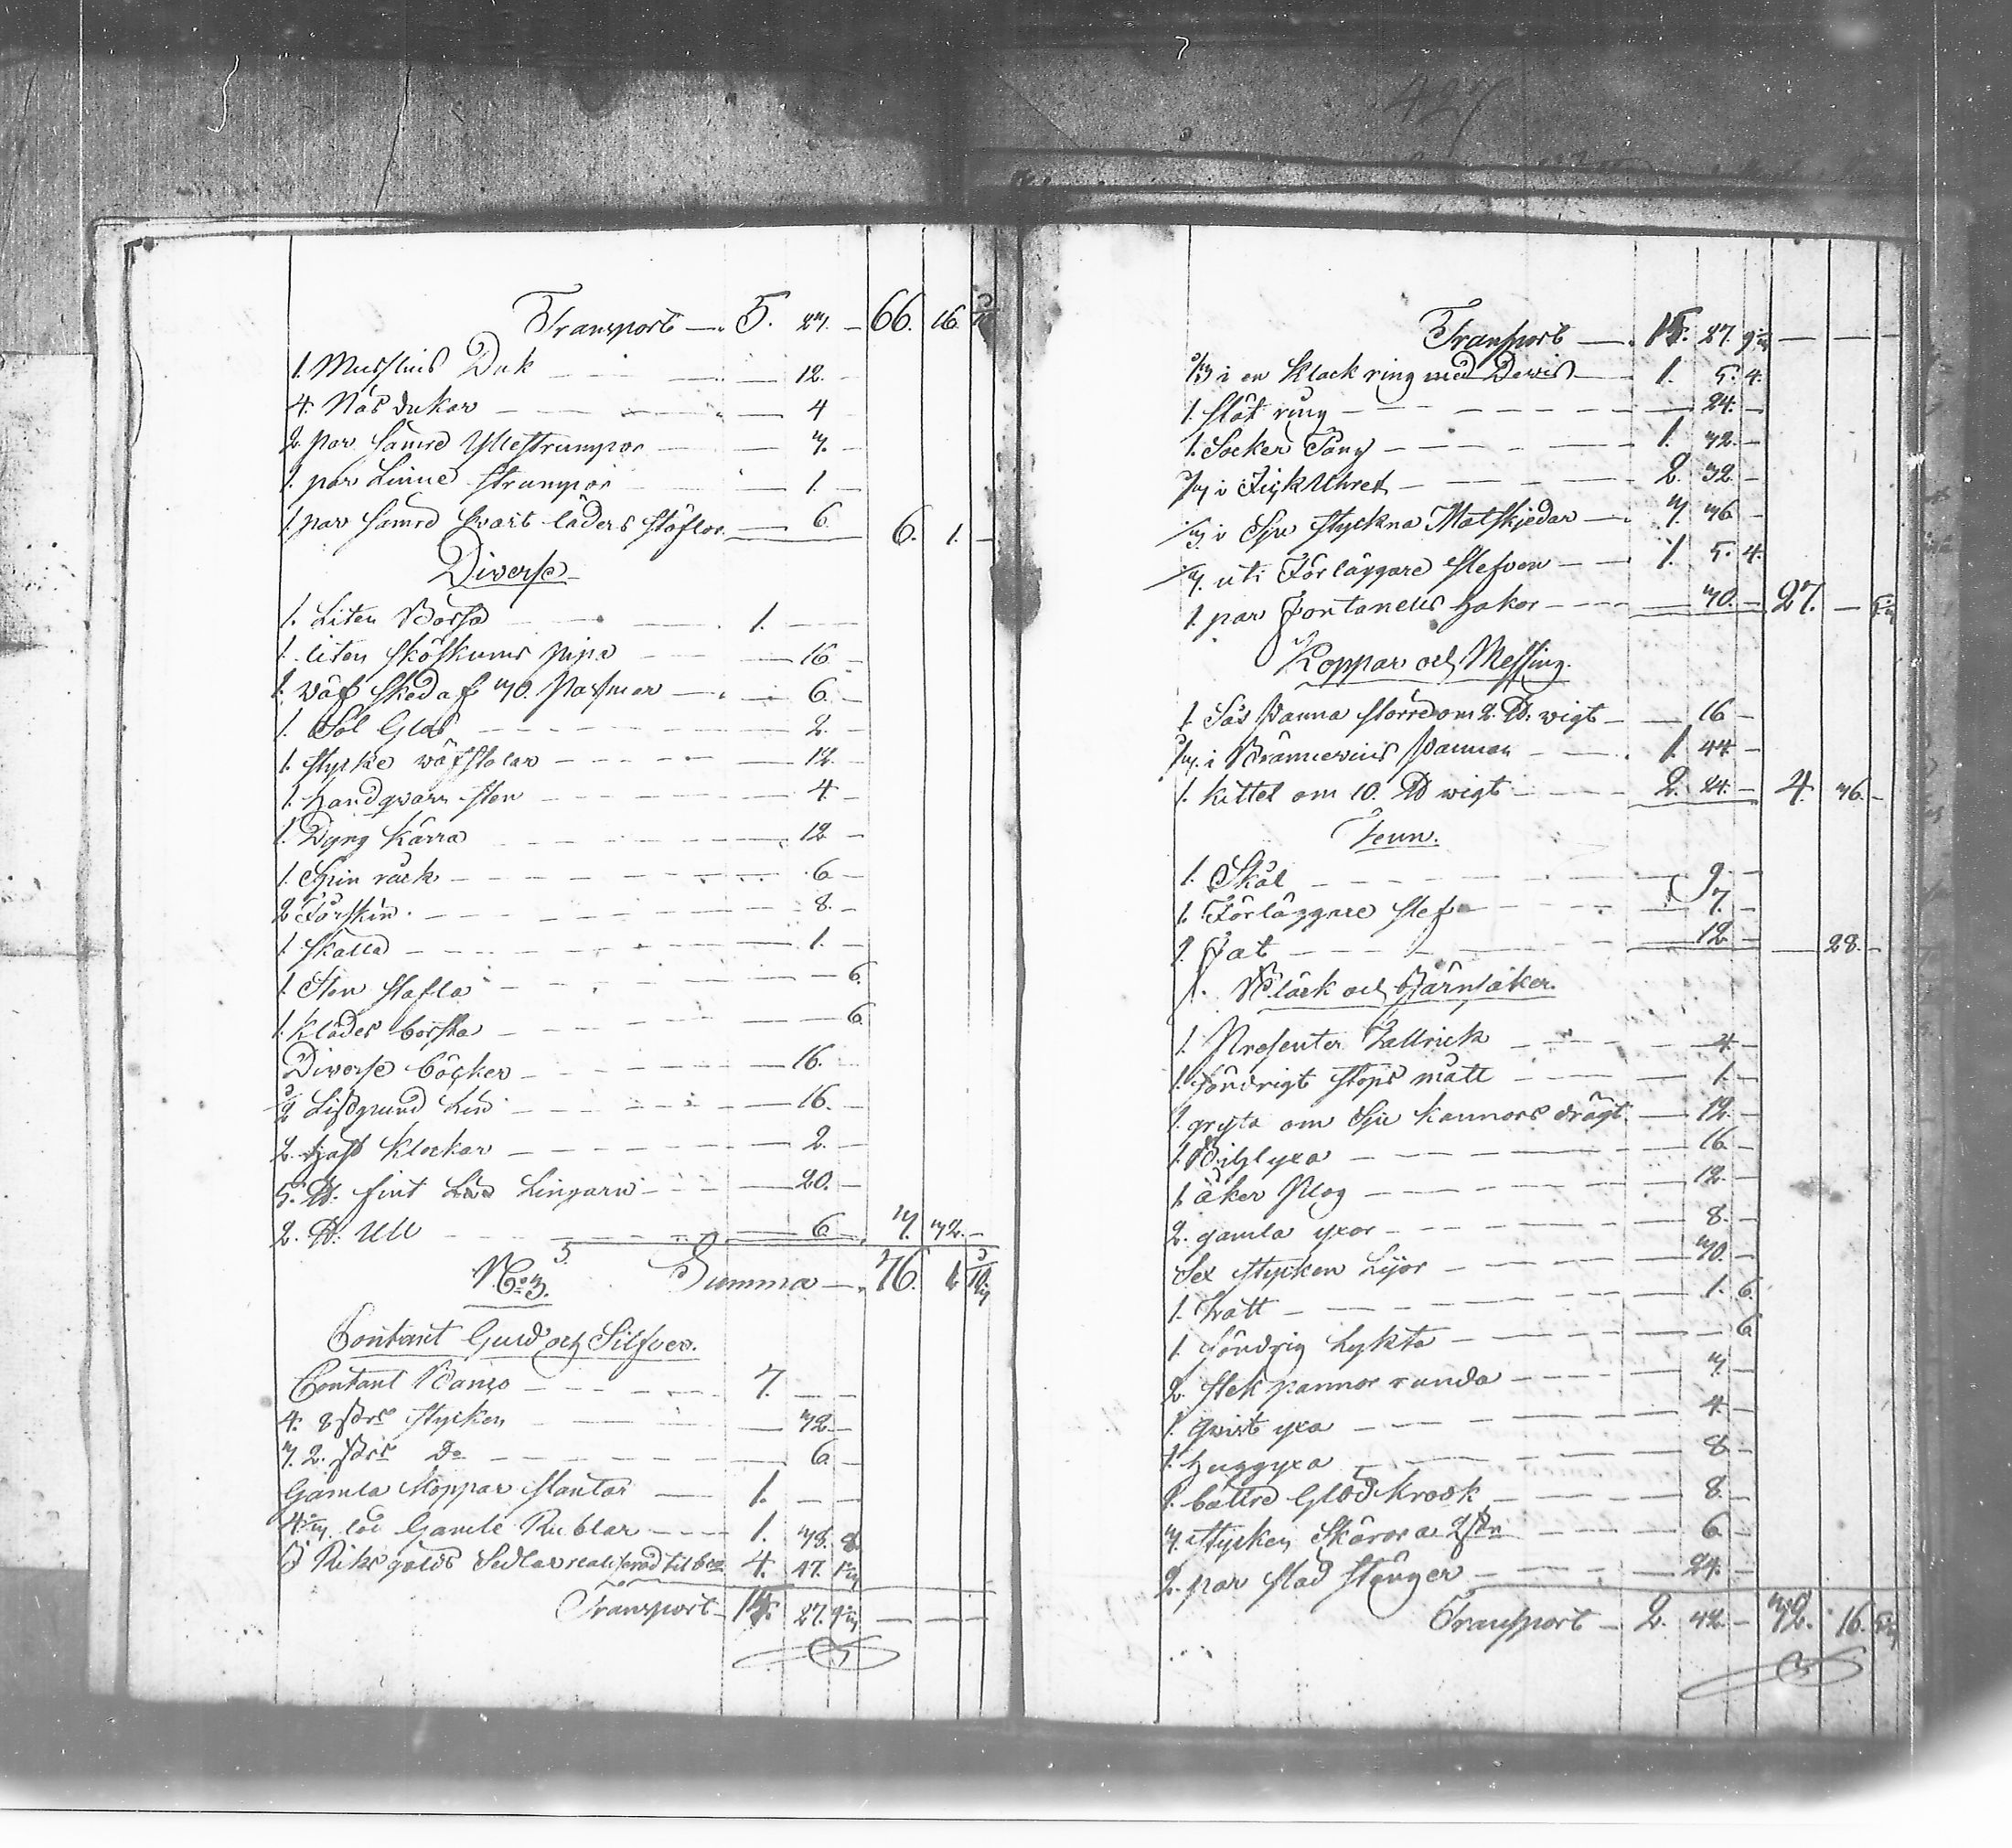 427
Transport — 5. 27. — 66. 16.
1. Musslins Duk — 12. —
4. Näs dukar — 4
2 par sämre Yllestrumpor — 3. —
1. par Linne strumpor — 1. —
1. par sämre svart läders stöflor — 6. 6. 1. —
Diverse
1. Liten Börsa — 1. —
1. liten sköskums pipa — 16 —
1. väf sked af 30. Pasmer — 6. —
1. Sol Glas — 2. —
1. stycke väfstolar — 12. —
1. handqvarn sten — 4 —
1. Dyng Kärra — 12 —
1. Spin råck — 6 —
2 Förskin — 8. —
1. Skålla — 1. —
1. Sten Tafla — 6.
1. Klädes borsta — 6.
Diverse böcker — 16. —
3/2 Lispund Lin — 16. —
2. häst klockor — 2. —
5. ℔. fint Lin Lingarn — 20. —
2. ℔. Ull — 6. 3. 32. —
No 3. Summa — 76. 1.
Contant Guld och Silfver.
Contant Banco — 7. —
4. 8 sdrs stycken — 32 —
3. 2. sdrs Do — 6 —
Gamla Koppar slantar — 1. —
lod Gamle Rublar — 1. 38. 8.
Riksgälds Sedlar realiserad til bco 4. 47.
Transport — 15. 27. — — —
Transport — 15. 27. — — —
1/3 i en Klackring med Devis — 1. 5. 4.
1. slät ring — 24. —
1. Socker Tång — 1. 32. —
i FickUhret — 2. 32. —
i Sju styckna Matskjedar — 3. 36 —
uti Förläggare slefven — 1. 5. 4.
1. par Fontanelis hakar — 30. — 27. —
Koppar och Messing.
1. Sås Panna större om 2. ℔. wigt — 16 —
i Brännevins Pannan — 1. 44 —
1. Kittel om 10. ℔ wigt — 2. 24. — 4. 36. —
Tenn.
1. Skål — 9. —
1. Förläggare slef — 7. —
1. Fat — 12 — — 28. —
Bläck och Järnsaker.
1. Presenter Tallrick — 4 —
1. söndrigt stops mått — 1. —
1. gryta om Sju kannors drägt — 12. —
1. Bihlyxa — 16 —
1. åker Plog — 12. —
2. gamla yxor — 8. —
Sex stycken Lijor — 30. —
1. tratt — 1. 6.
1. söndrig Lykta — 6
2. stek pannor runda — 3. —
1. qvist yxa — 4. —
1. huggyxa — 8 —
1. bättre Glöd krook — 8. —
3. stycken Skäror a 2 sdr — 6 —
2. par stad stänger — 24. —
Transport — 2. 42. — 32. 16.